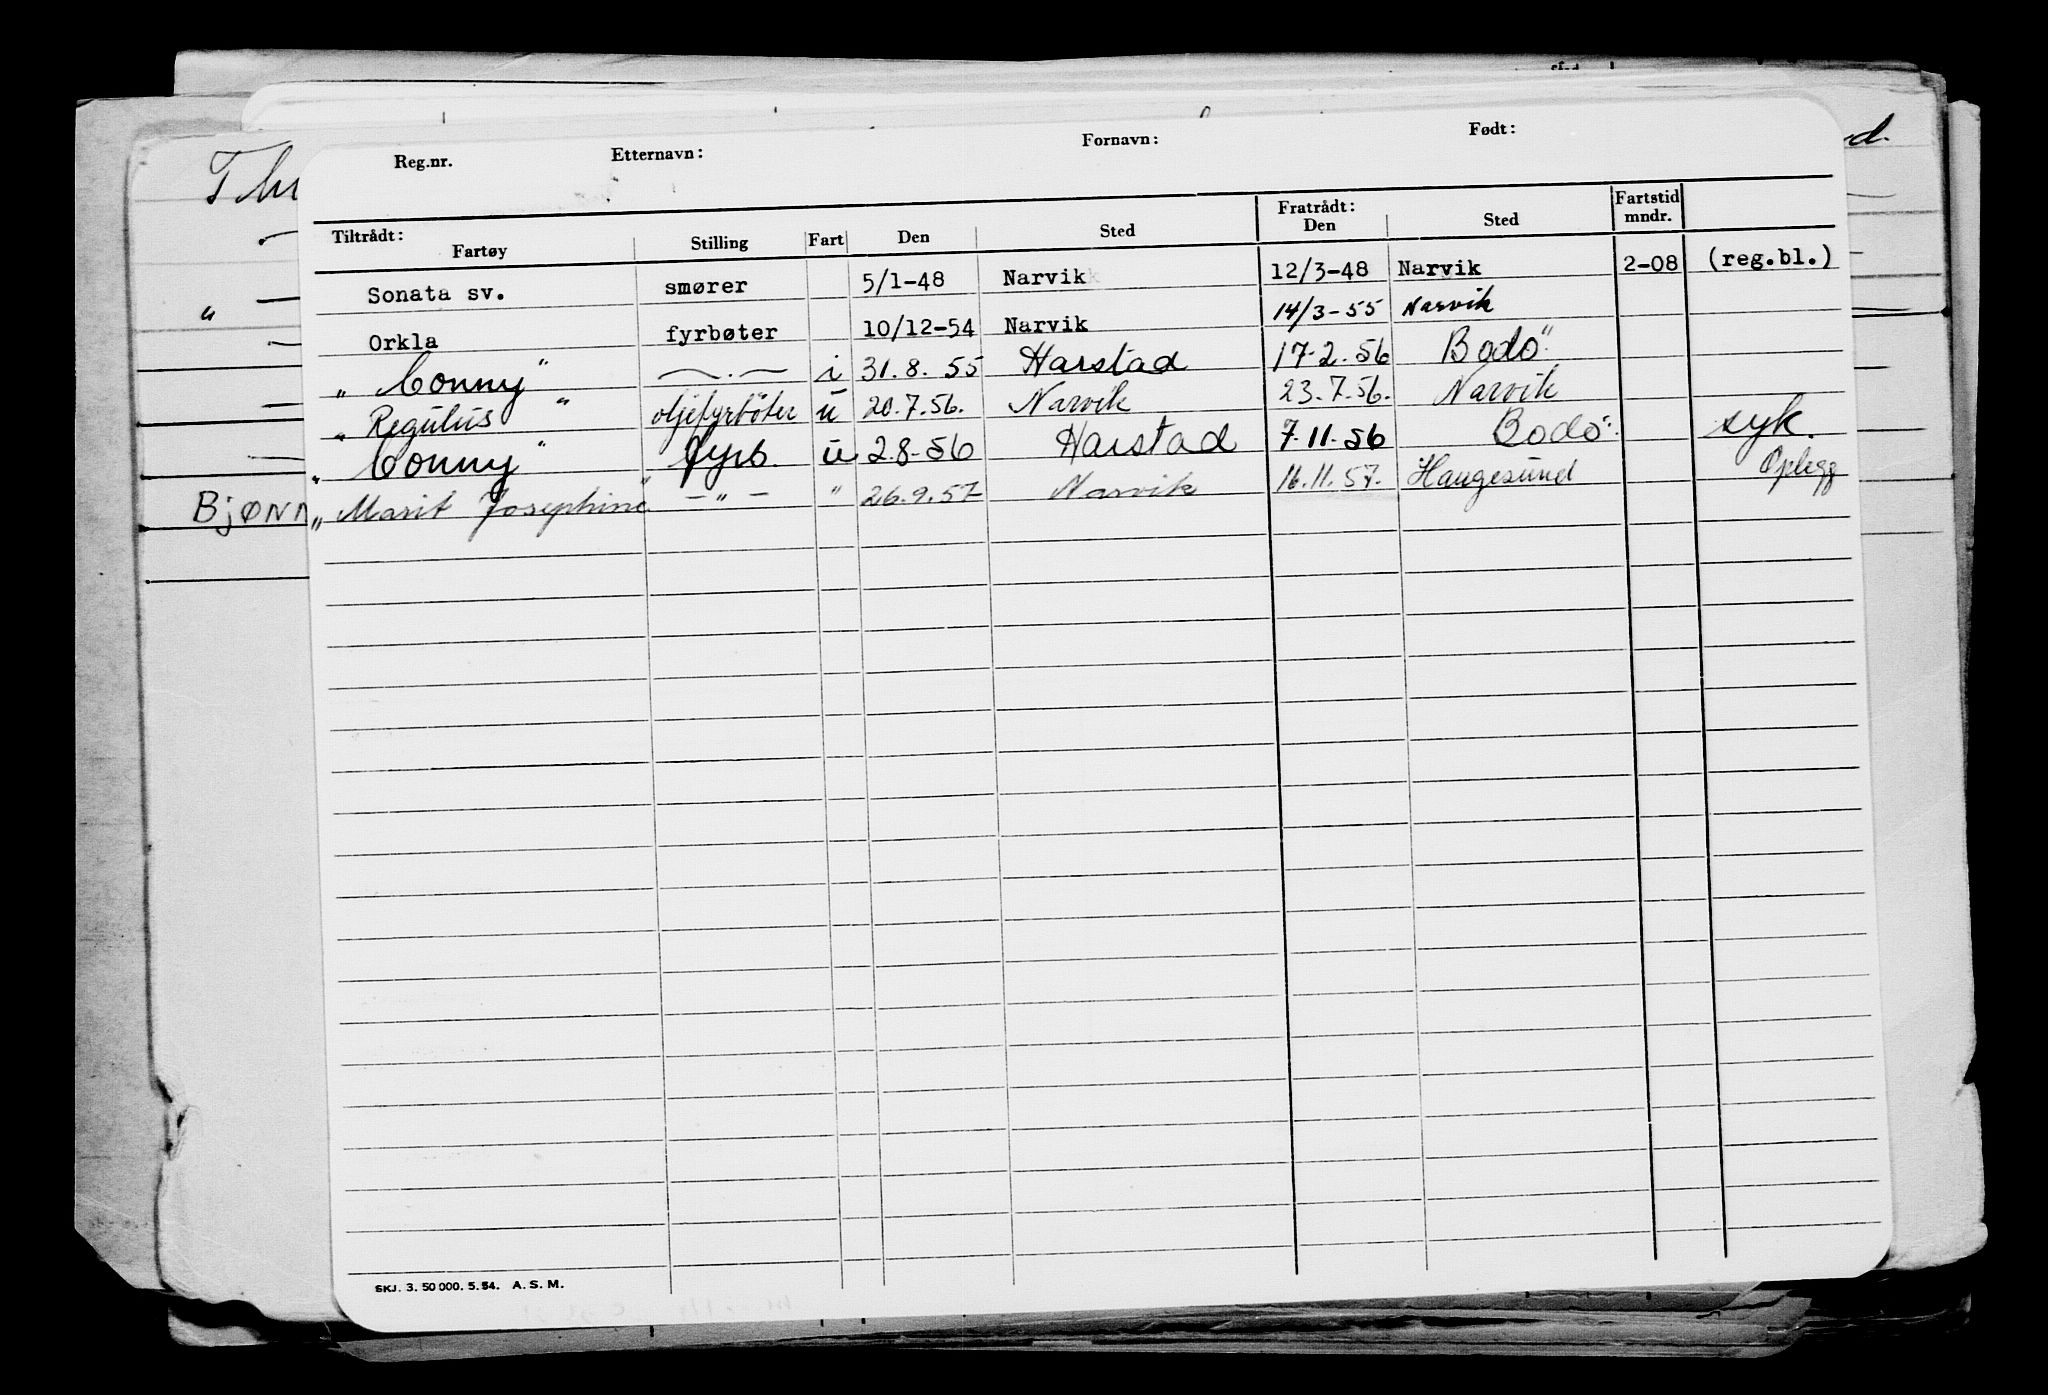 Reg.nr. Etternavn: Fornavn: Født:
Tiltrådt: Fratrådt:
Fartøy Stilling Fart Den Sted Den Sted Fartstid mndr.
Sonata sv. smører 5/1-48 Narvik 12/3-48 Narvik 2-08 (reg.bl.)
Orkla fyrbøter 10/12-54 Narvik 14/3-55 Narvik
"Conny" —.— i 31.8.55 Harstad 17-2.56 Bodö
"Regulus" oljefyrböter u 20.7.56. Narvik 23.7.56. Narvik
"Conny" fyrb. u 2.8-56 Harstad 7.11.56 Bodö. syk.
"Marit Josephine" —"— " 26.9.57 Narvik 16.11.57. Haugesund Oplegg
BjØNN
SKJ. 3. 50 000. 5. 54. A. S. M.